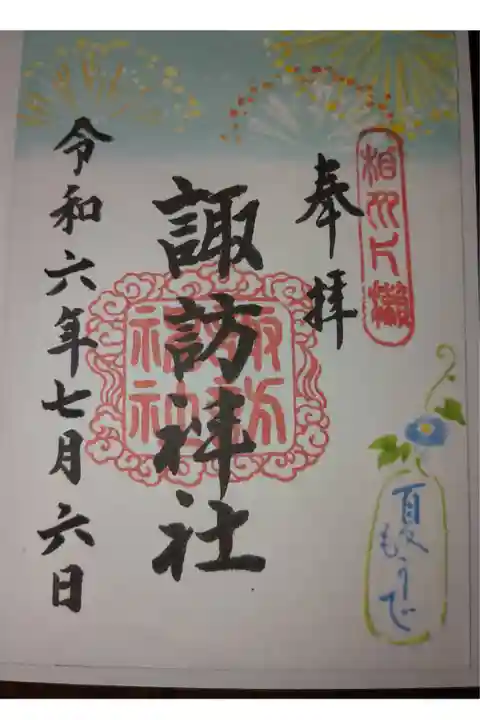 相州片瀬
奉拝
夏もうで
諏訪神社
諏訪神社
令和六年七月六日